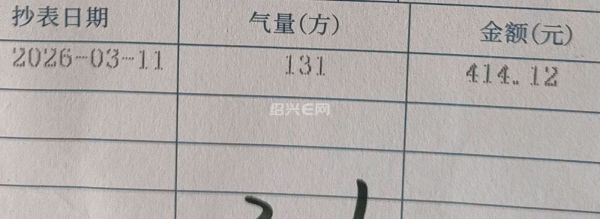 抄表日期 气量(方) 金额(元)
2026-03-11 131 414.12
绍兴E网